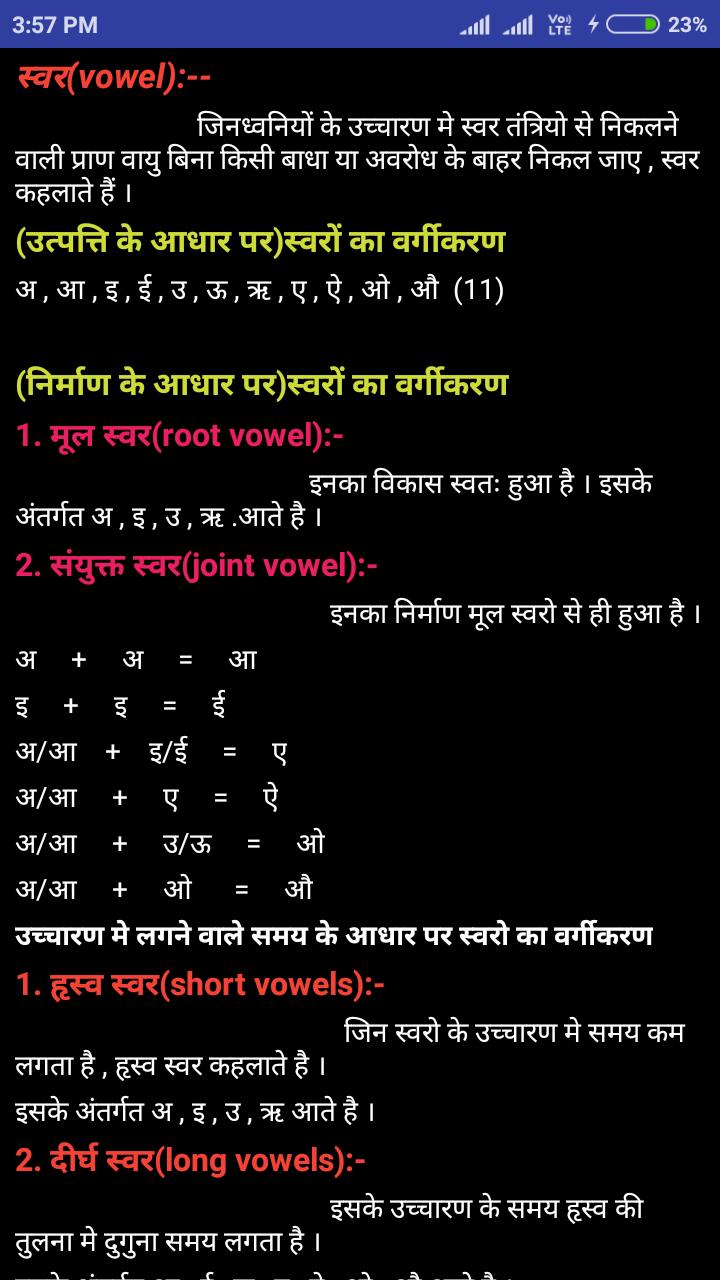 3:57 PM
Vo)) LTE
23%
स्वर(vowel):--
जिनध्वनियों के उच्चारण मे स्वर तंत्रियो से निकलने
वाली प्राण वायु बिना किसी बाधा या अवरोध के बाहर निकल जाए , स्वर
कहलाते हैं ।
(उत्पत्ति के आधार पर)स्वरों का वर्गीकरण
अ , आ , इ , ई , उ , ऊ , ऋ , ए , ऐ , ओ , औ (11)
(निर्माण के आधार पर)स्वरों का वर्गीकरण
1. मूल स्वर(root vowel):-
इनका विकास स्वतः हुआ है । इसके
अंतर्गत अ , इ , उ , ऋ .आते है ।
2. संयुक्त स्वर(joint vowel):-
इनका निर्माण मूल स्वरो से ही हुआ है ।
अ + अ = आ
इ + इ = ई
अ/आ + इ/ई = ए
अ/आ + ए = ऐ
अ/आ + उ/ऊ = ओ
अ/आ + ओ = औ
उच्चारण मे लगने वाले समय के आधार पर स्वरो का वर्गीकरण
1. हृस्व स्वर(short vowels):-
जिन स्वरो के उच्चारण मे समय कम
लगता है , हृस्व स्वर कहलाते है ।
इसके अंतर्गत अ , इ , उ , ऋ आते है ।
2. दीर्घ स्वर(long vowels):-
इसके उच्चारण के समय हृस्व की
तुलना मे दुगुना समय लगता है ।